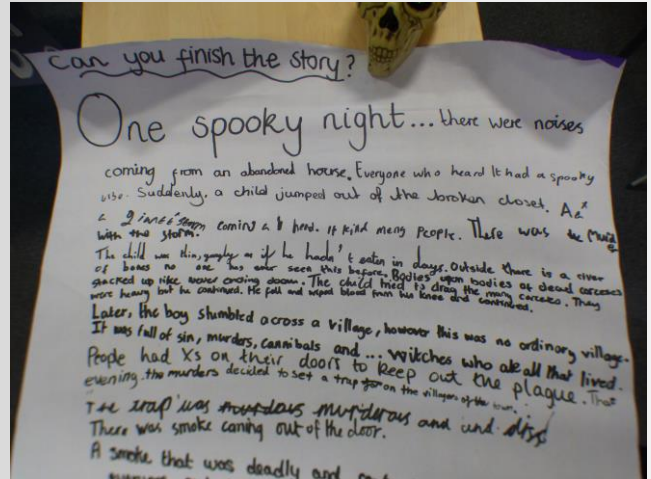 Can you finish the story?
One spooky night... there were noises
coming from an abandoned house. Everyone who heard It had a spooky
vibe. Suddenly, a child jumped out of the broken closet. 
a storm coming a heed. It kild meny People. There was the
with the storm.
The child was thin, gangly as if he hadn't eaten in days. Outside there is a river
of bones no one has ever seen this before. Bodies upon bodies of dead carceses
stacked up like never ending doom. The child tried to drag the many carceses. They
were heavy but he continued. He fell and wiped blood from his knee and continued.
Later, the boy stumbled across a village, however this was no ordinary village.
It was full of sin, murders, cannibals and ... witches who ate all that lived.
People had Xs on their doors to keep out the plague. That
evening. the murders decided to set a trap on the villagers of the town...
The trap was murderous and und
There was smoke caning out of the door.
A smoke that was deadly and